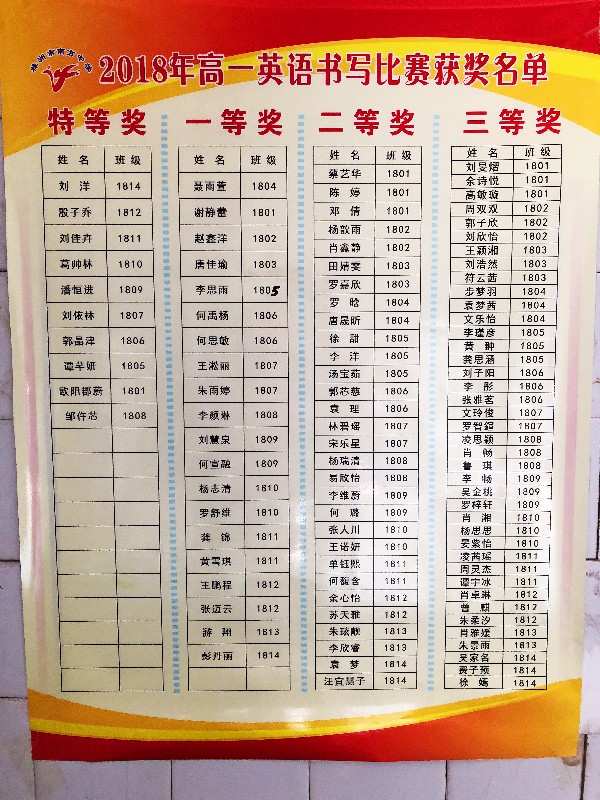 株洲市南方中学
2018年高一英语书写比赛获奖名单
特等奖
姓 名 班 级
刘 洋 1814
殷子乔 1812
刘佳卉 1811
葛帅林 1810
潘恒进 1809
刘依林 1807
郭晶津 1806
谭芊妍 1805
欧阳郡蔚 1801
邹仵芯 1808
一等奖
姓 名 班 级
聂雨萱 1804
谢静蕾 1801
赵鑫洋 1802
唐佳瑜 1803
李思雨 1805
何禹杨 1806
何思敏 1806
王淞丽 1807
朱雨婷 1807
李颜琳 1808
刘慧泉 1809
何宣融 1809
杨志清 1810
罗舒维 1810
龚 锦 1811
黄雪琪 1811
王鹏程 1812
张迈云 1812
游 翔 1813
彭丹丽 1814
二等奖
姓 名 班 级
蔡艺华 1801
陈 婷 1801
邓 倩 1801
杨歆雨 1802
肖鑫静 1802
田婧雯 1803
罗嘉欣 1803
罗 晗 1804
唐晟昕 1804
徐 甜 1805
李 洋 1805
汤宝茹 1805
郭芯慈 1806
袁 理 1806
林碧瑶 1807
宋乐星 1807
杨瑞清 1808
易欣怡 1808
李维蔚 1809
何 璐 1809
张人川 1810
王诺妍 1810
单钰熙 1811
何馥含 1811
余心怡 1812
苏天雅 1812
朱玹靓 1813
李欣睿 1813
袁 梦 1814
汪宜慧子 1814
三等奖
姓 名 班 级
刘旻熠 1801
余诗悦 1801
高敏璇 1801
周双双 1802
郭子欣 1802
刘欣怡 1802
王颖湘 1803
刘浩然 1803
符云茜 1803
步梦羽 1804
袁梦茜 1804
文乐怡 1804
李瑾彦 1805
黄 翀 1805
龚思涵 1805
刘子阳 1806
李 彤 1806
张雅茗 1806
文玲俊 1807
罗智鎧 1807
凌思颖 1808
肖 畅 1808
鲁 琪 1808
李 畅 1809
吴金桃 1809
罗梓轩 1809
肖 湘 1810
杨思思 1810
晏紫怡 1810
凌茜瑶 1811
周灵杰 1811
谭宇冰 1811
肖卓琳 1812
曾 麒 1812
朱柔汐 1812
肖雅媛 1813
朱景雨 1813
吴家名 1814
龚子预 1814
徐 嫣 1814